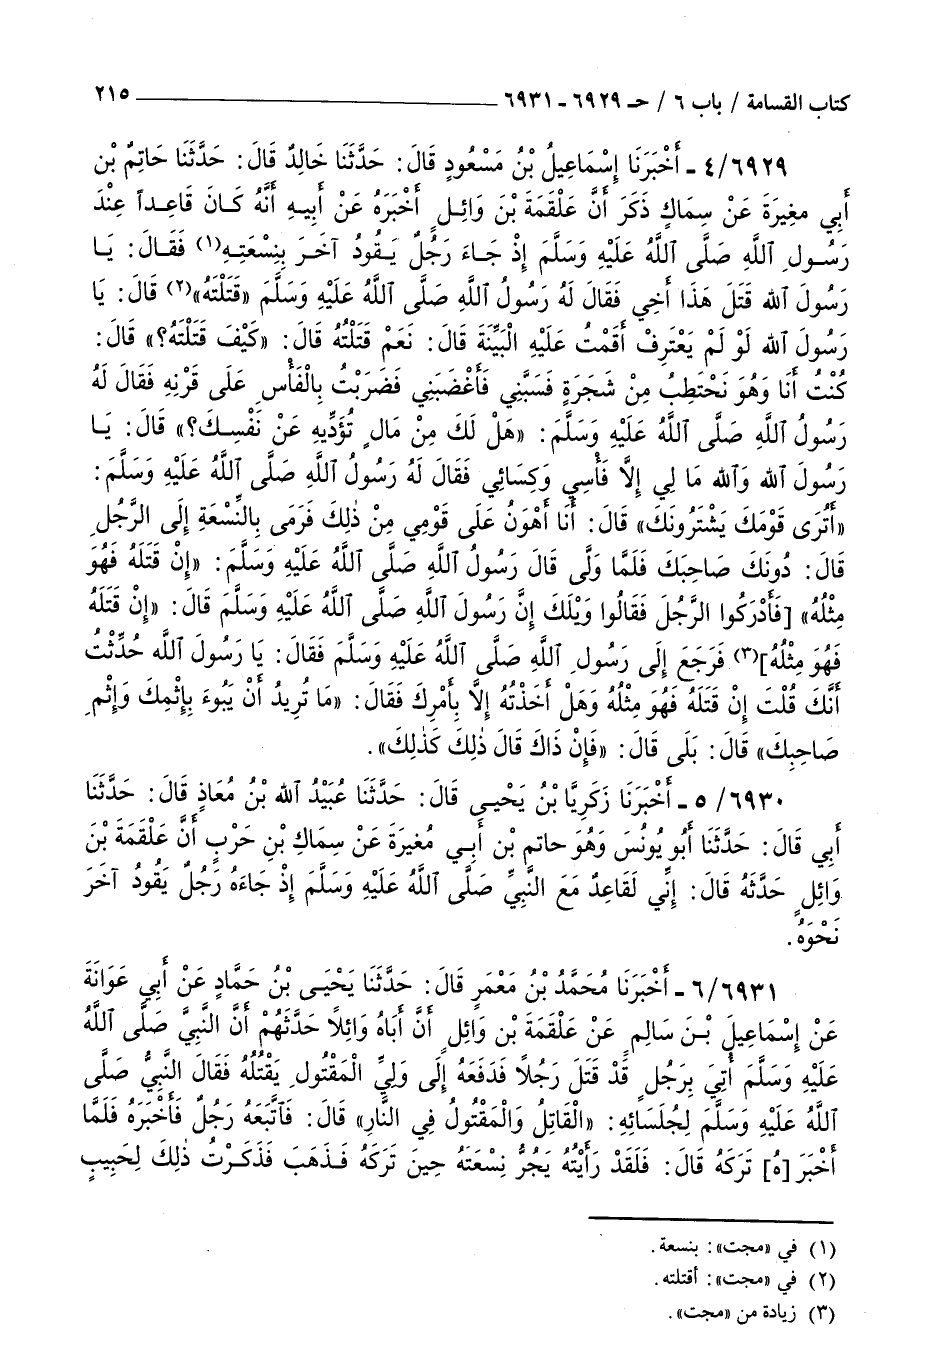 كتاب القسامة / باب ٦ / حـ ٦٩٢٩ - ٦٩٣١ ٢١٥
٤/٦٩٢٩ - أَخْبَرَنَا إِسْمَاعِيلُ بْنُ مَسْعُودٍ قَالَ: حَدَّثَنَا خَالِدٌ قَالَ: حَدَّثَنَا حَاتِمُ بْن
أَبي مغِيرَةَ عَنْ سِمَاكٍ ذَكَرَ أَنَّ عَلْقَمَةَ بْنَ وَائِلٍ أَخْبَرَهُ عَنْ أَبِيهِ أَنَّهُ كَانَ قَاعِداً عِنْدَ
رَسُولِ اللَّهِ صَلَّى اللَّهُ عَلَيْهِ وَسَلَّمَ إِذْ جَاءَ رَجُلٌ يَقُودُ آخَرَ بِنِسْعَتِهِ(١) فَقَالَ: يَا
رَسُولَ الله قَتَلَ هَذَا أَخِي فَقَالَ لَهُ رَسُولُ اللَّهِ صَلَّى اللَّهُ عَلَيْهِ وَسَلَّمَ «قَتَلْتَهُ»(٢) قَالَ: يَا
رَسُولَ الله لَوْ لَمْ يَعْتَرِفْ أَقَمْتُ عَلَيْهِ الْبَيِّنَةَ قَالَ: نَعَمْ قَتَلْتُهُ قَالَ: «كَيْفَ قَتَلْتَهُ؟» قَالَ:
كُنْتُ أَنَا وَهُوَ نَحْتَطِبُ مِنْ شَجَرَةٍ فَسَبَّنِي فَأَغْضَبَنِي فَضَرَبْتُ بِالْفَأْسِ عَلَى قَرْنِهِ فَقَالَ لَهُ
رَسُولُ اللَّهِ صَلَّى اللَّهُ عَلَيْهِ وَسَلَّمَ: «هَلْ لَكَ مِنْ مَالٍ تُؤَدِّيهِ عَنْ نَفْسِكَ؟» قَالَ: يَا
رَسُولَ الله وَالله مَا لِي إِلَّا فَأْسِي وَكِسَائِي فَقَالَ لَهُ رَسُولُ اللَّهِ صَلَّى اللَّهُ عَلَيْهِ وَسَلَّمَ:
«أَتُرَى قَوْمَكَ يَشْتَرُونَكَ» قَالَ: أَنَا أَهْوَنُ عَلَى قَوْمِي مِنْ ذٰلِكَ فَرَمَى بِالنِّسْعَةِ إِلَى الرَّجُلِ
قَالَ: دُونَكَ صَاحِبَكَ فَلَمَّا وَلَّى قَالَ رَسُولُ اللَّهِ صَلَّى اللَّهُ عَلَيْهِ وَسَلَّمَ: «إِنْ قَتَلَهُ فَهُوَ
مِثْلُهُ» [فَأَدْرَكُوا الرَّجُلَ فَقَالُوا وَيْلَكَ إِنَّ رَسُولَ اللَّهِ صَلَّى اللَّهُ عَلَيْهِ وَسَلَّمَ قَالَ: «إِنْ قَتَلَهُ
فَهُوَ مِثْلُهُ](٣) فَرَجَعَ إِلَى رَسُولِ اللَّهِ صَلَّى اللَّهُ عَلَيْهِ وَسَلَّمَ فَقَالَ: يَا رَسُولَ الله حُدِّثْتُ
أَنَّكَ قُلْتَ إِنْ قَتَلَهُ فَهُوَ مِثْلُهُ وَهَلْ أَخَذْتُهُ إِلَّا بِأَمْرِكَ فَقَالَ: «مَا تُرِيدُ أَنْ يَبُوءَ بِإِثْمِكَ وَإِثْمِ
صَاحِبِكَ» قَالَ: بَلَى قَالَ: «فَإِنْ ذَاكَ قَالَ ذٰلِكَ كَذٰلِكَ».
٥/٦٩٣٠ - أَخْبَرَنَا زَكَرِيَّا بْنُ يَحْيى قَالَ: حَدَّثَنَا عُبَيْدُ الله بْنُ مُعَاذٍ قَالَ: حَدَّثَنَا
أَبي قَالَ: حَدَّثَنَا أَبُو يُونُسَ وَهُوَ حاتم بْن أَبي مُغِيرَةَ عَنْ سِمَاكِ بْنِ حَرْبٍ أَنَّ عَلْقَمَةَ بْنَ
وَائِلٍ حَدَّثَهُ قَالَ: إِنِّي لَقَاعِدٌ مَعَ النَّبِيِّ صَلَّى اللَّهُ عَلَيْهِ وَسَلَّمَ إِذْ جَاءَهُ رَجُلٌ يَقُودُ آخَرَ
نَحْوَهُ.
٦/٦٩٣١ - أَخْبَرَنَا مُحَمَّدُ بْنُ مَعْمَرٍ قَالَ: حَدَّثَنَا يَحْيَى بْنُ حَمَّادٍ عَنْ أَبي عَوَانَةَ
عَنْ إِسْمَاعِيلَ بْنَ سَالِمٍ عَنْ عَلْقَمَةَ بْن وَائِلٍ أَنَّ أَبَاهُ وَائِلاً حَدَّثَهُمْ أَنَّ النَّبِيَّ صَلَّى اللَّهُ
عَلَيْهِ وَسَلَّمَ أُتِيَ بِرَجُلٍ قَدْ قَتَلَ رَجُلاً فَدَفَعَهُ إِلَى وَلِيِّ الْمَقْتُولِ يَقْتُلُهُ فَقَالَ النَّبِيُّ صَلَّى
اللَّهُ عَلَيْهِ وَسَلَّمَ لِجُلَسَائِهِ: «الْقَاتِلُ وَالْمَقْتُولُ فِي النَّارِ» قَالَ: فَاتَّبَعَهُ رَجُلٌ فَأَخْبَرَهُ فَلَمَّا
أَخْبَرَ [هُ] تَرَكَهُ قَالَ: فَلَقَدْ رَأَيْتُهُ يَجُرُّ نِسْعَتَهُ حِينَ تَرَكَهُ فَذَهَبَ فَذَكَرْتُ ذٰلِكَ لِحَبِيبٍ
(١) في «مجت»: بنسعة.
(٢) في «مجت»: أقتلته.
(٣) زيادة من «مجت».